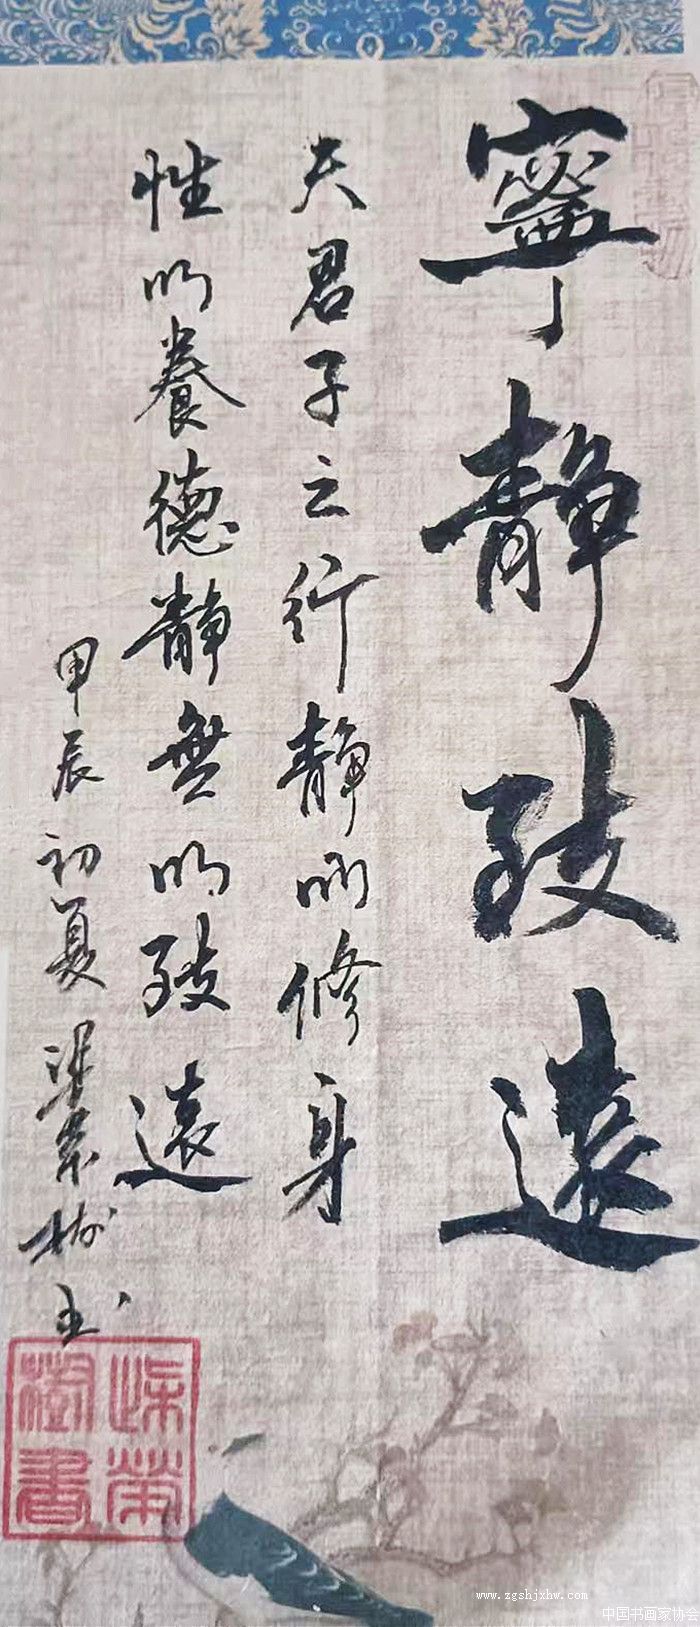 寧靜致遠
夫君子之行靜以修身
性以養德靜無以致遠
甲辰初夏榮樹书
榮
樹書
www.zgshjxhw.com
中国书画家协会